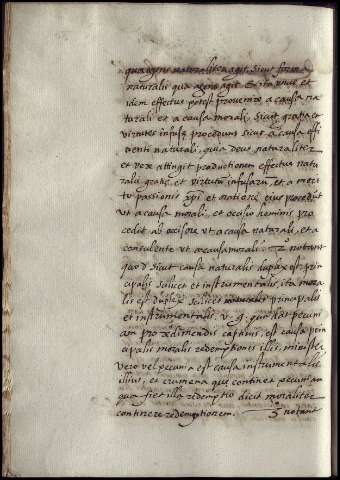 qua agens naturaliter agit. Sicut forma
naturalis qua agens agit. Et ita unus et
idem effectus potest provenire a causa na
turali et a causa morali. Sicut gratia et
virtutes infusę procedunt sicut a causa effi
cienti naturali, quia deus naturaliter
et vere attingit productionem effectus natu
ralis gratię, et virtutum infusarū, et a meri
to passionis xp̄i et oratione ejus procedūt
ut a causa morali, et occisio hominis pro
cedit ab occisore ut a causa naturali, et a
consulente ut a causa morali. 2º notant
quod sicut causa naturalis duplex est, prin
cipalis scilicet et instrumentalis, ita mora
lis est duplex scilicet principalis
et instrumentalis. v. g. qui dat pecuni
am pro redimendis captivis, est causa prin
cipalis moralis redemptionis illis, minister
vero vel pecunia est causa instrumentalis
illius, et crumena quę continet pecuniam
qua fiet illa redemptio dicit moraliter
continere redemptionem. 3º notant